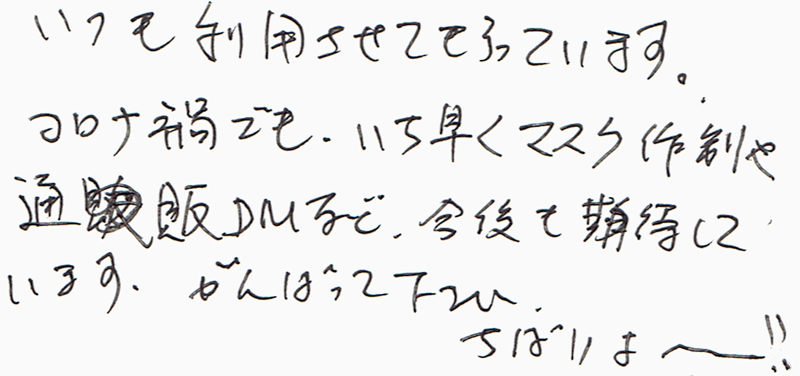 いつも利用させてもらっています。
コロナ禍でも、いち早くマスク作制や
通販DMなど、今後も期待して
います、がんばって下さい、
ちばりよ〜!!